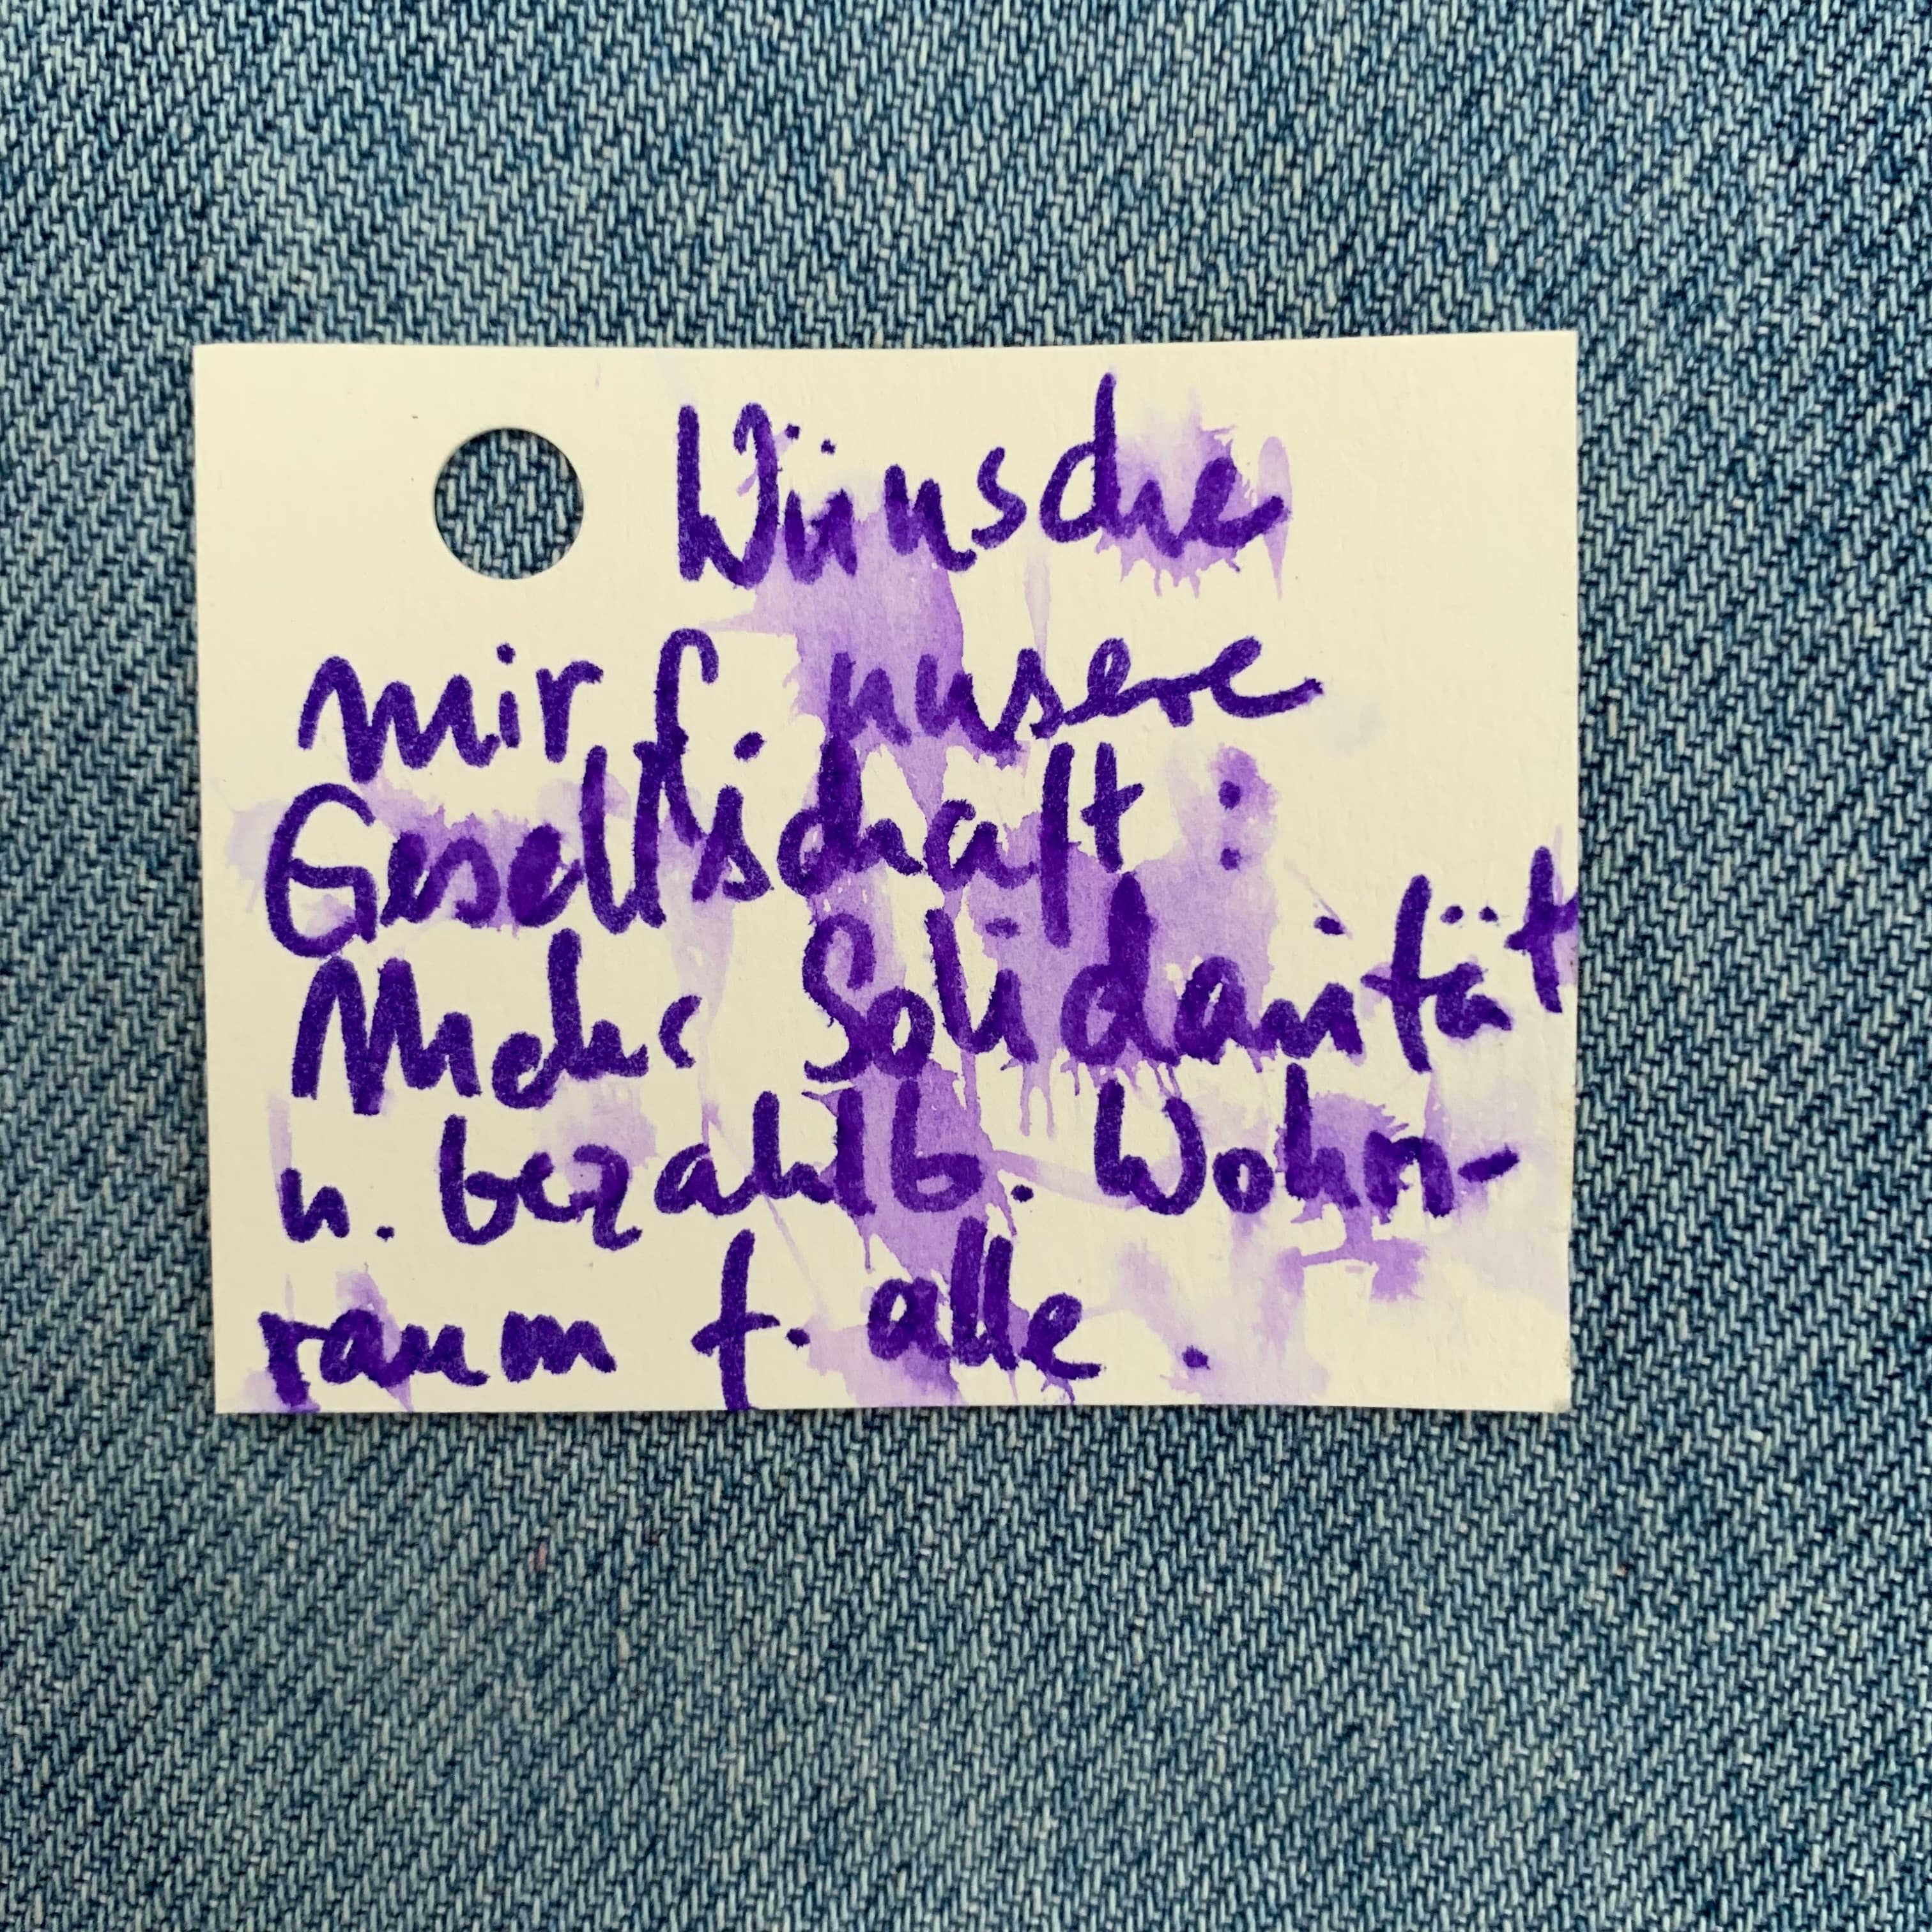 Wünsche
mir f. unsere
Gesellschaft :
Mehr Solidarität
u. bezahlb. Wohn-
raum f. alle .